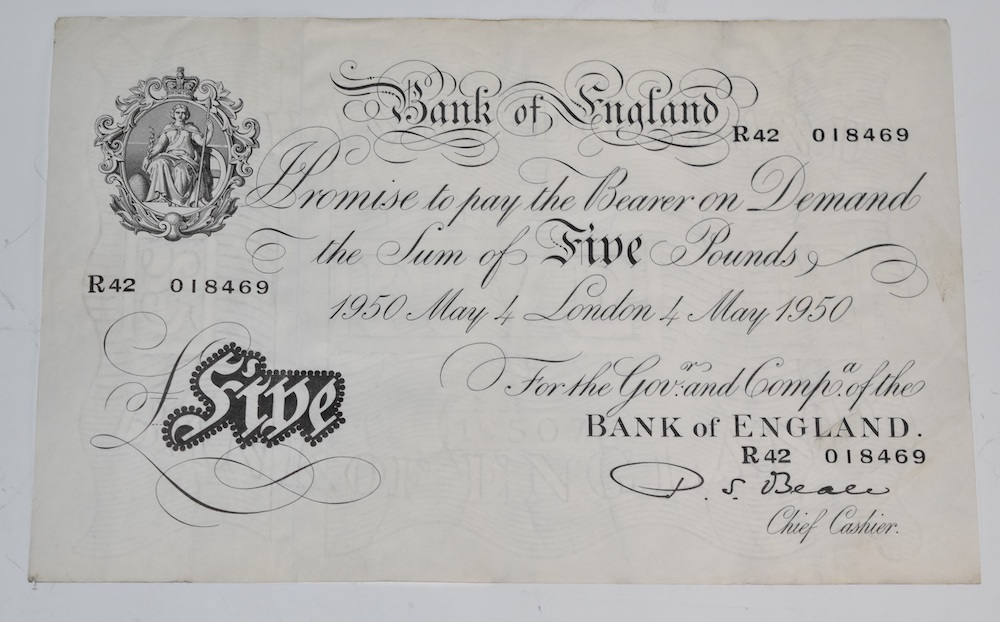 Bank of England
R42 018469
I Promise to pay the Bearer on Demand
the Sum of Five Pounds
R42 018469
1950 May 4 London 4 May 1950
£Five
For the Govr. and Compa. of the
BANK of ENGLAND.
R42 018469
P. S. Beale
Chief Cashier.